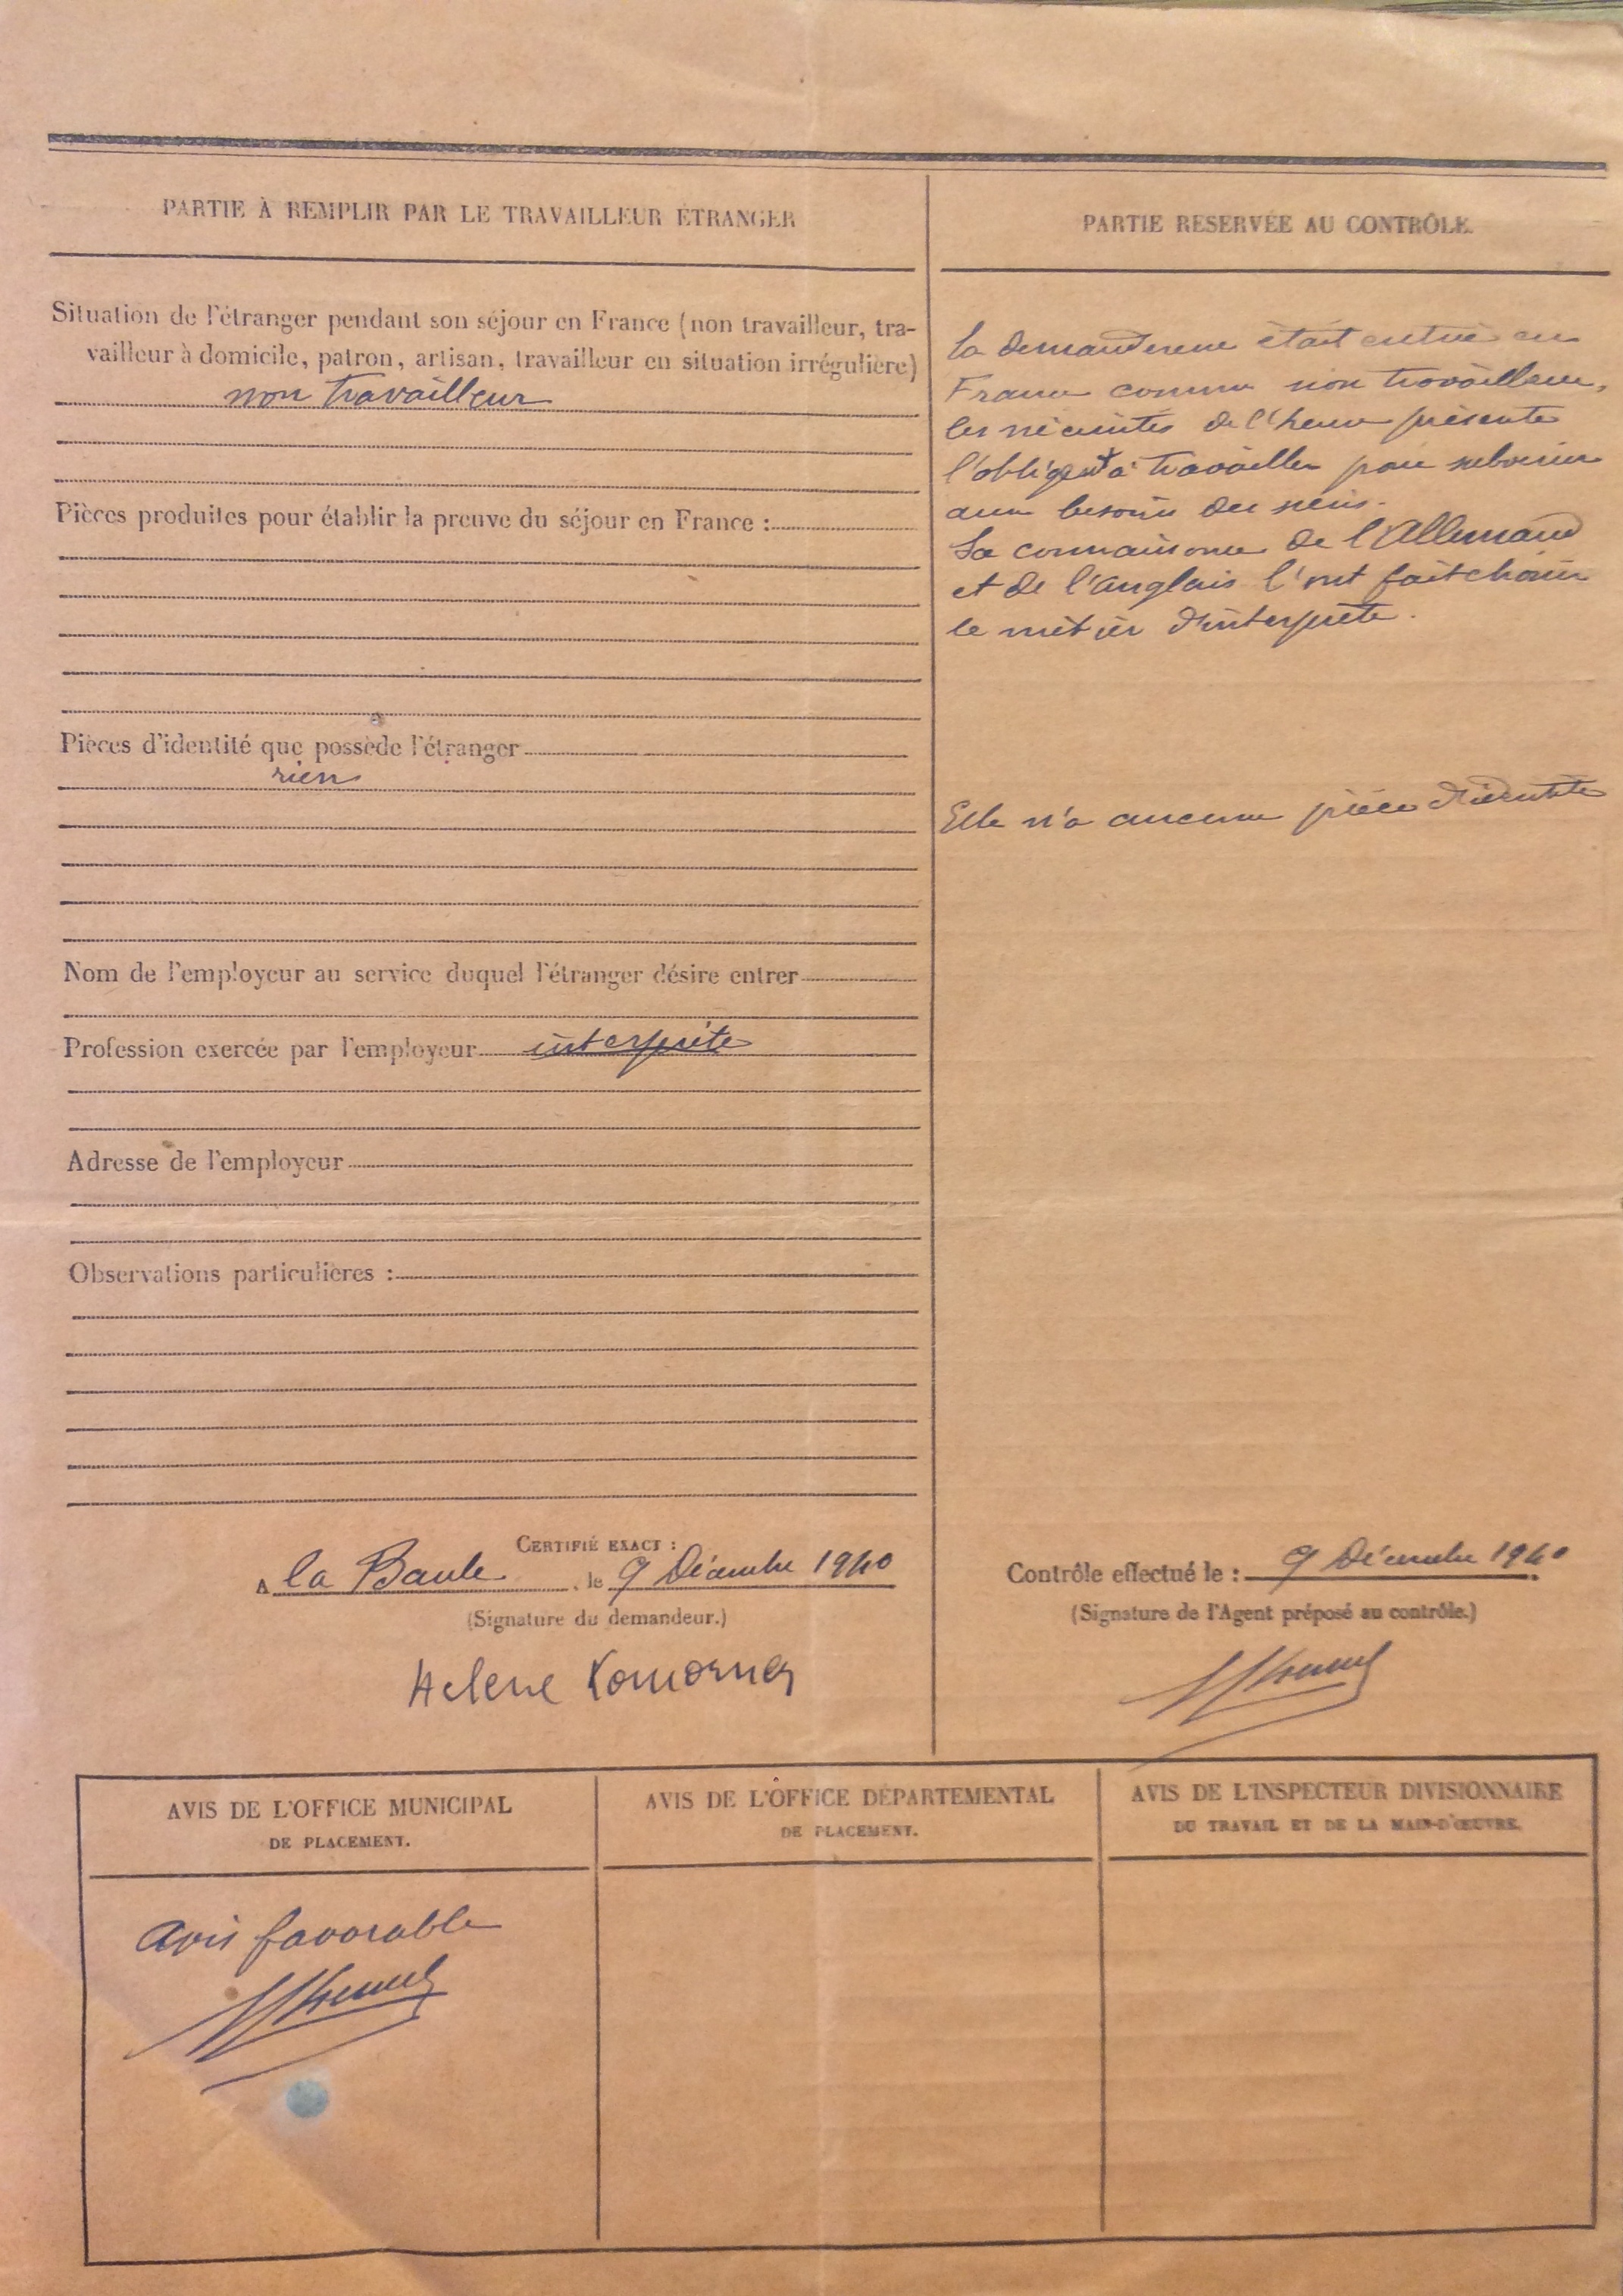 PARTIE À REMPLIR PAR LE TRAVAILLEUR ÉTRANGER
Situation de l'étranger pendant son séjour en France (non travailleur, tra-
vailleur à domicile, patron, artisan, travailleur en situation irrégulière)
non travailleur
Pièces produites pour établir la preuve du séjour en France :
Pièces d'identité que possède l'étranger
rien
Nom de l'employeur au service duquel l'étranger désire entrer
Profession exercée par l'employeur interprète
Adresse de l'employeur
Observations particulières :
CERTIFIÉ EXACT :
A la Baule , le 9 Décembre 1940
(Signature du demandeur.)
Helene
PARTIE RÉSERVÉE AU CONTRÔLE.
la demandereuse était entrée en
France comme non travailleur,
les nécessités de l'heure présente
l'obligent à travailler pour subvenir
aux besoins des siens.
Sa connaissance de l'Allemand
et de l'anglais l'ont fait choisir
le métier d'interprète.
Elle n'a aucune pièce d'identité
Contrôle effectué le : 9 Décembre 1940
(Signature de l'Agent préposé au contrôle.)
AVIS DE L'OFFICE MUNICIPAL
DE PLACEMENT.
avis favorable
AVIS DE L'OFFICE DÉPARTEMENTAL
DE PLACEMENT.
AVIS DE L'INSPECTEUR DIVISIONNAIRE
DU TRAVAIL ET DE LA MAIN-D'ŒUVRE.